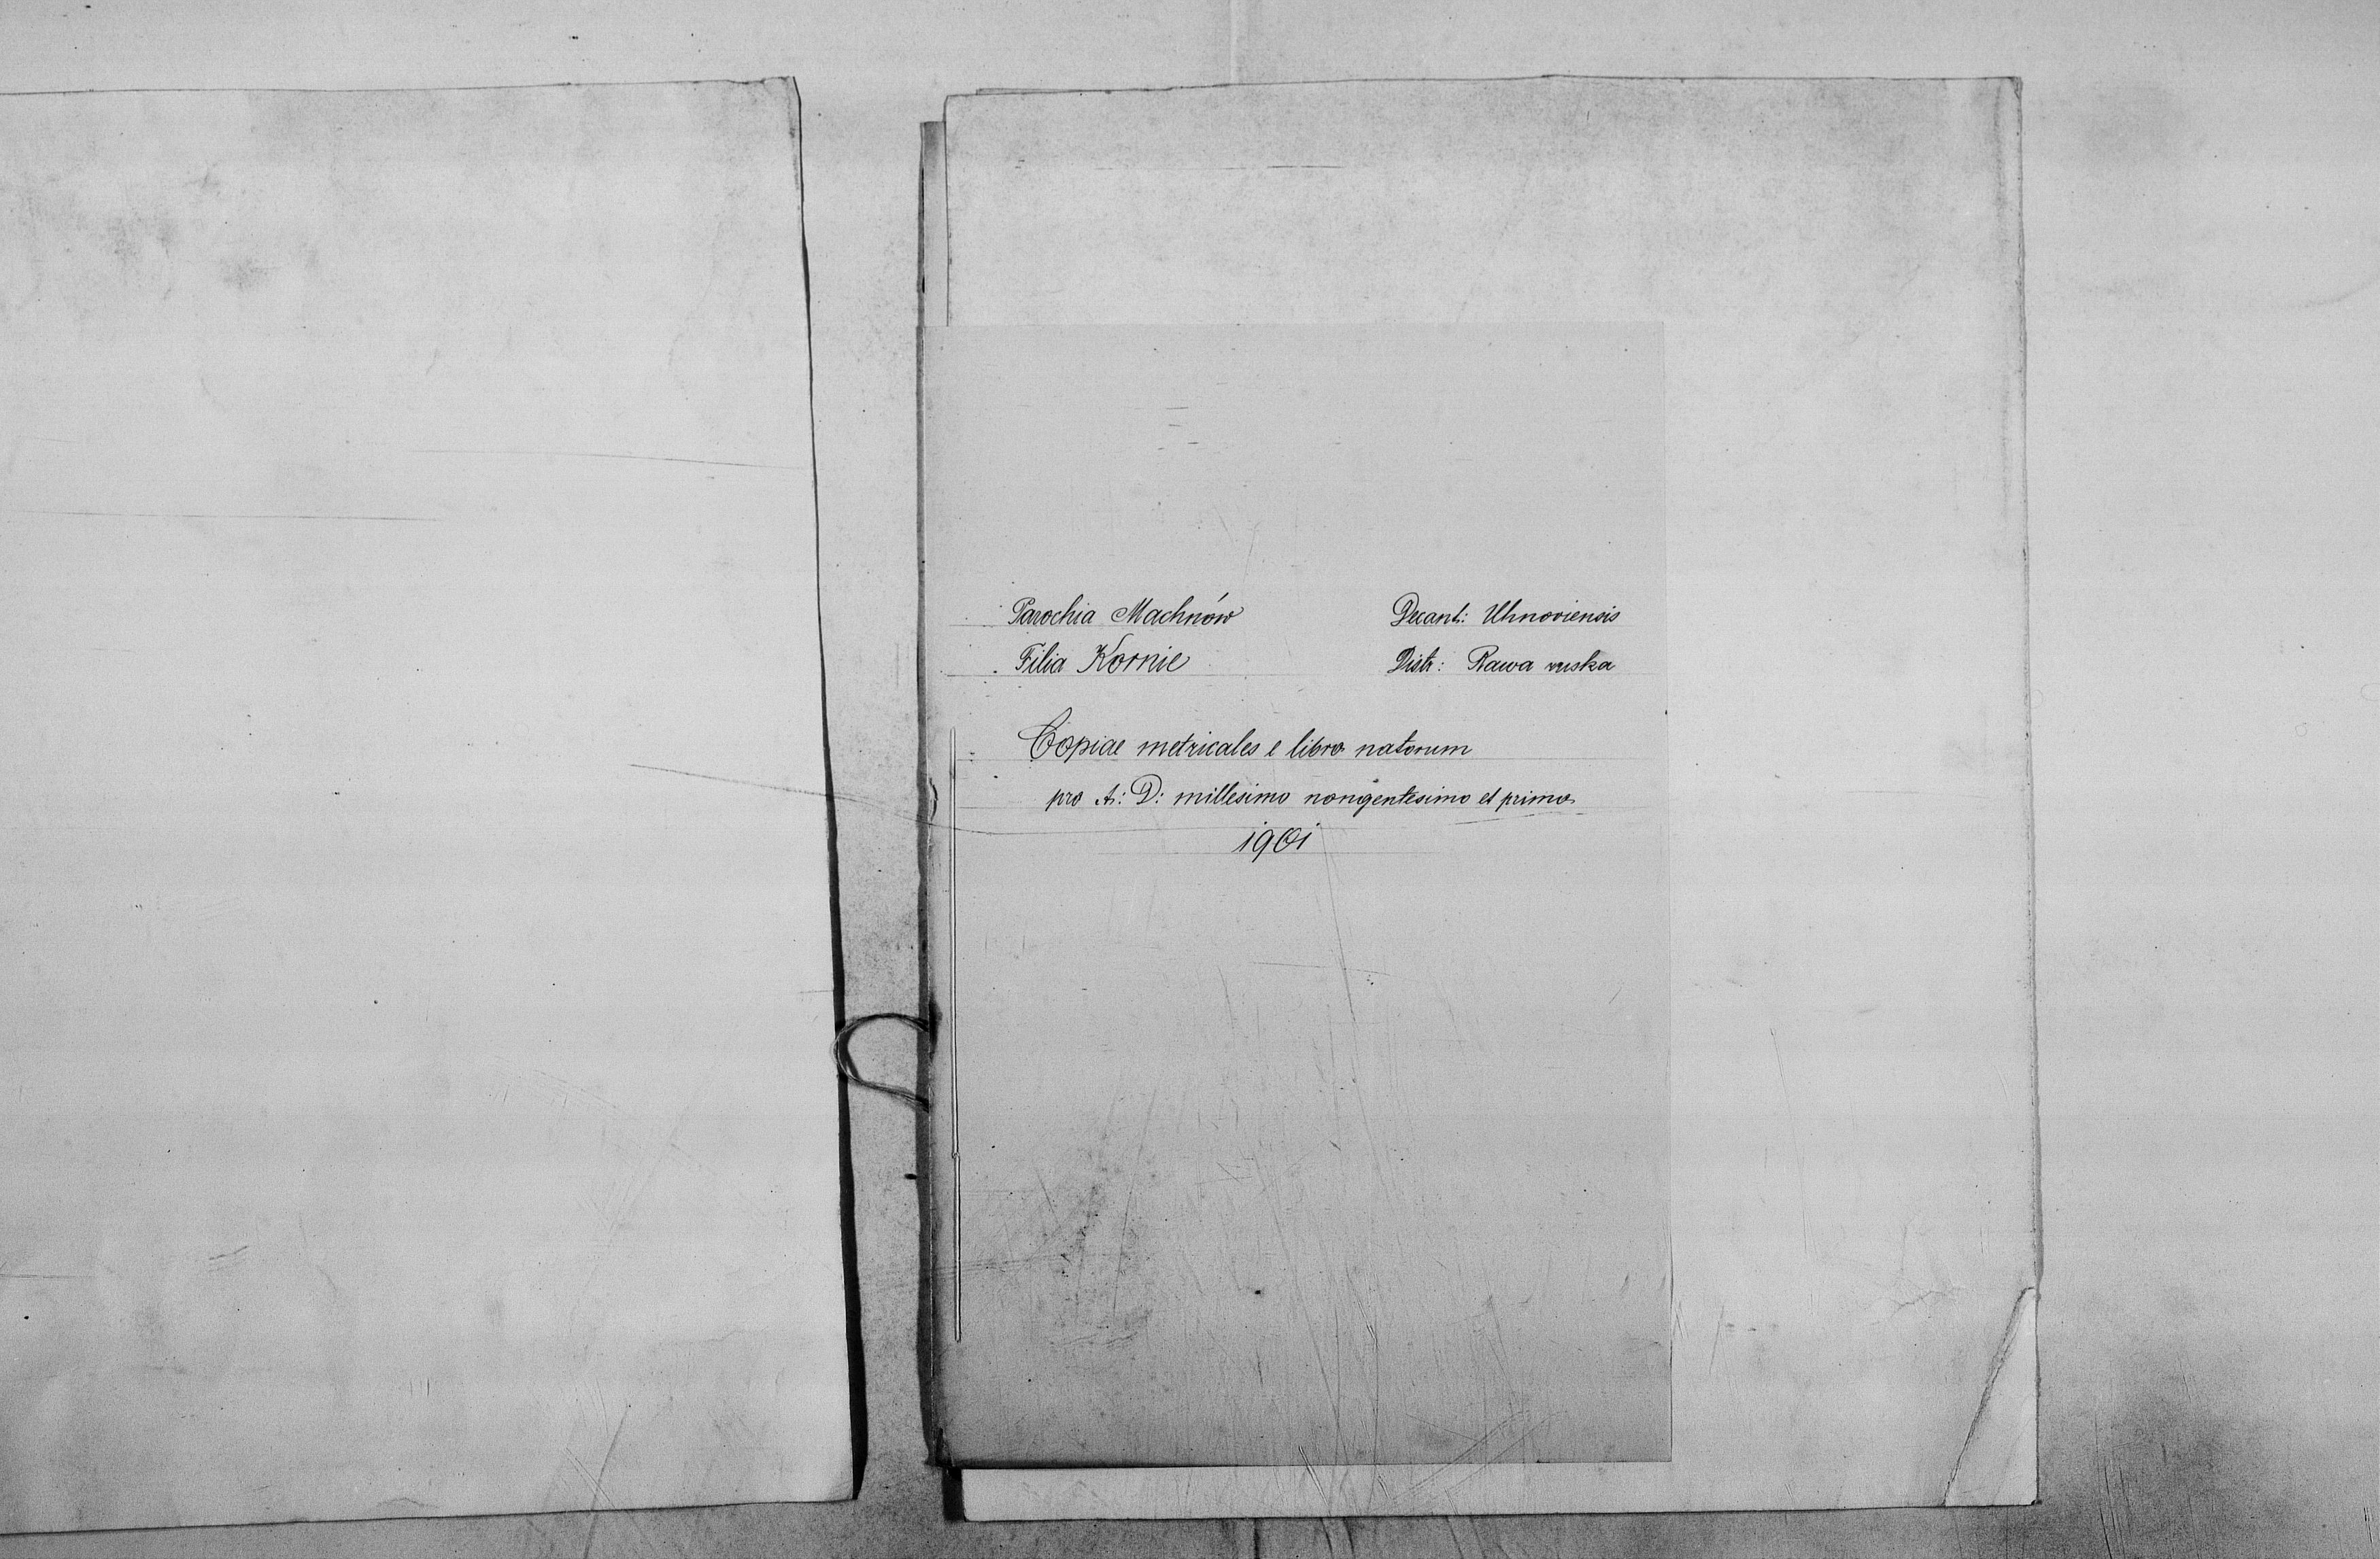 Parochia Machnów Decant: Uhnoviensis
Filia Kornie Distr: Rawa ruska
Copiae metricales e libro natorum
pro A: D: millesimo nongentesimo et primo
1901